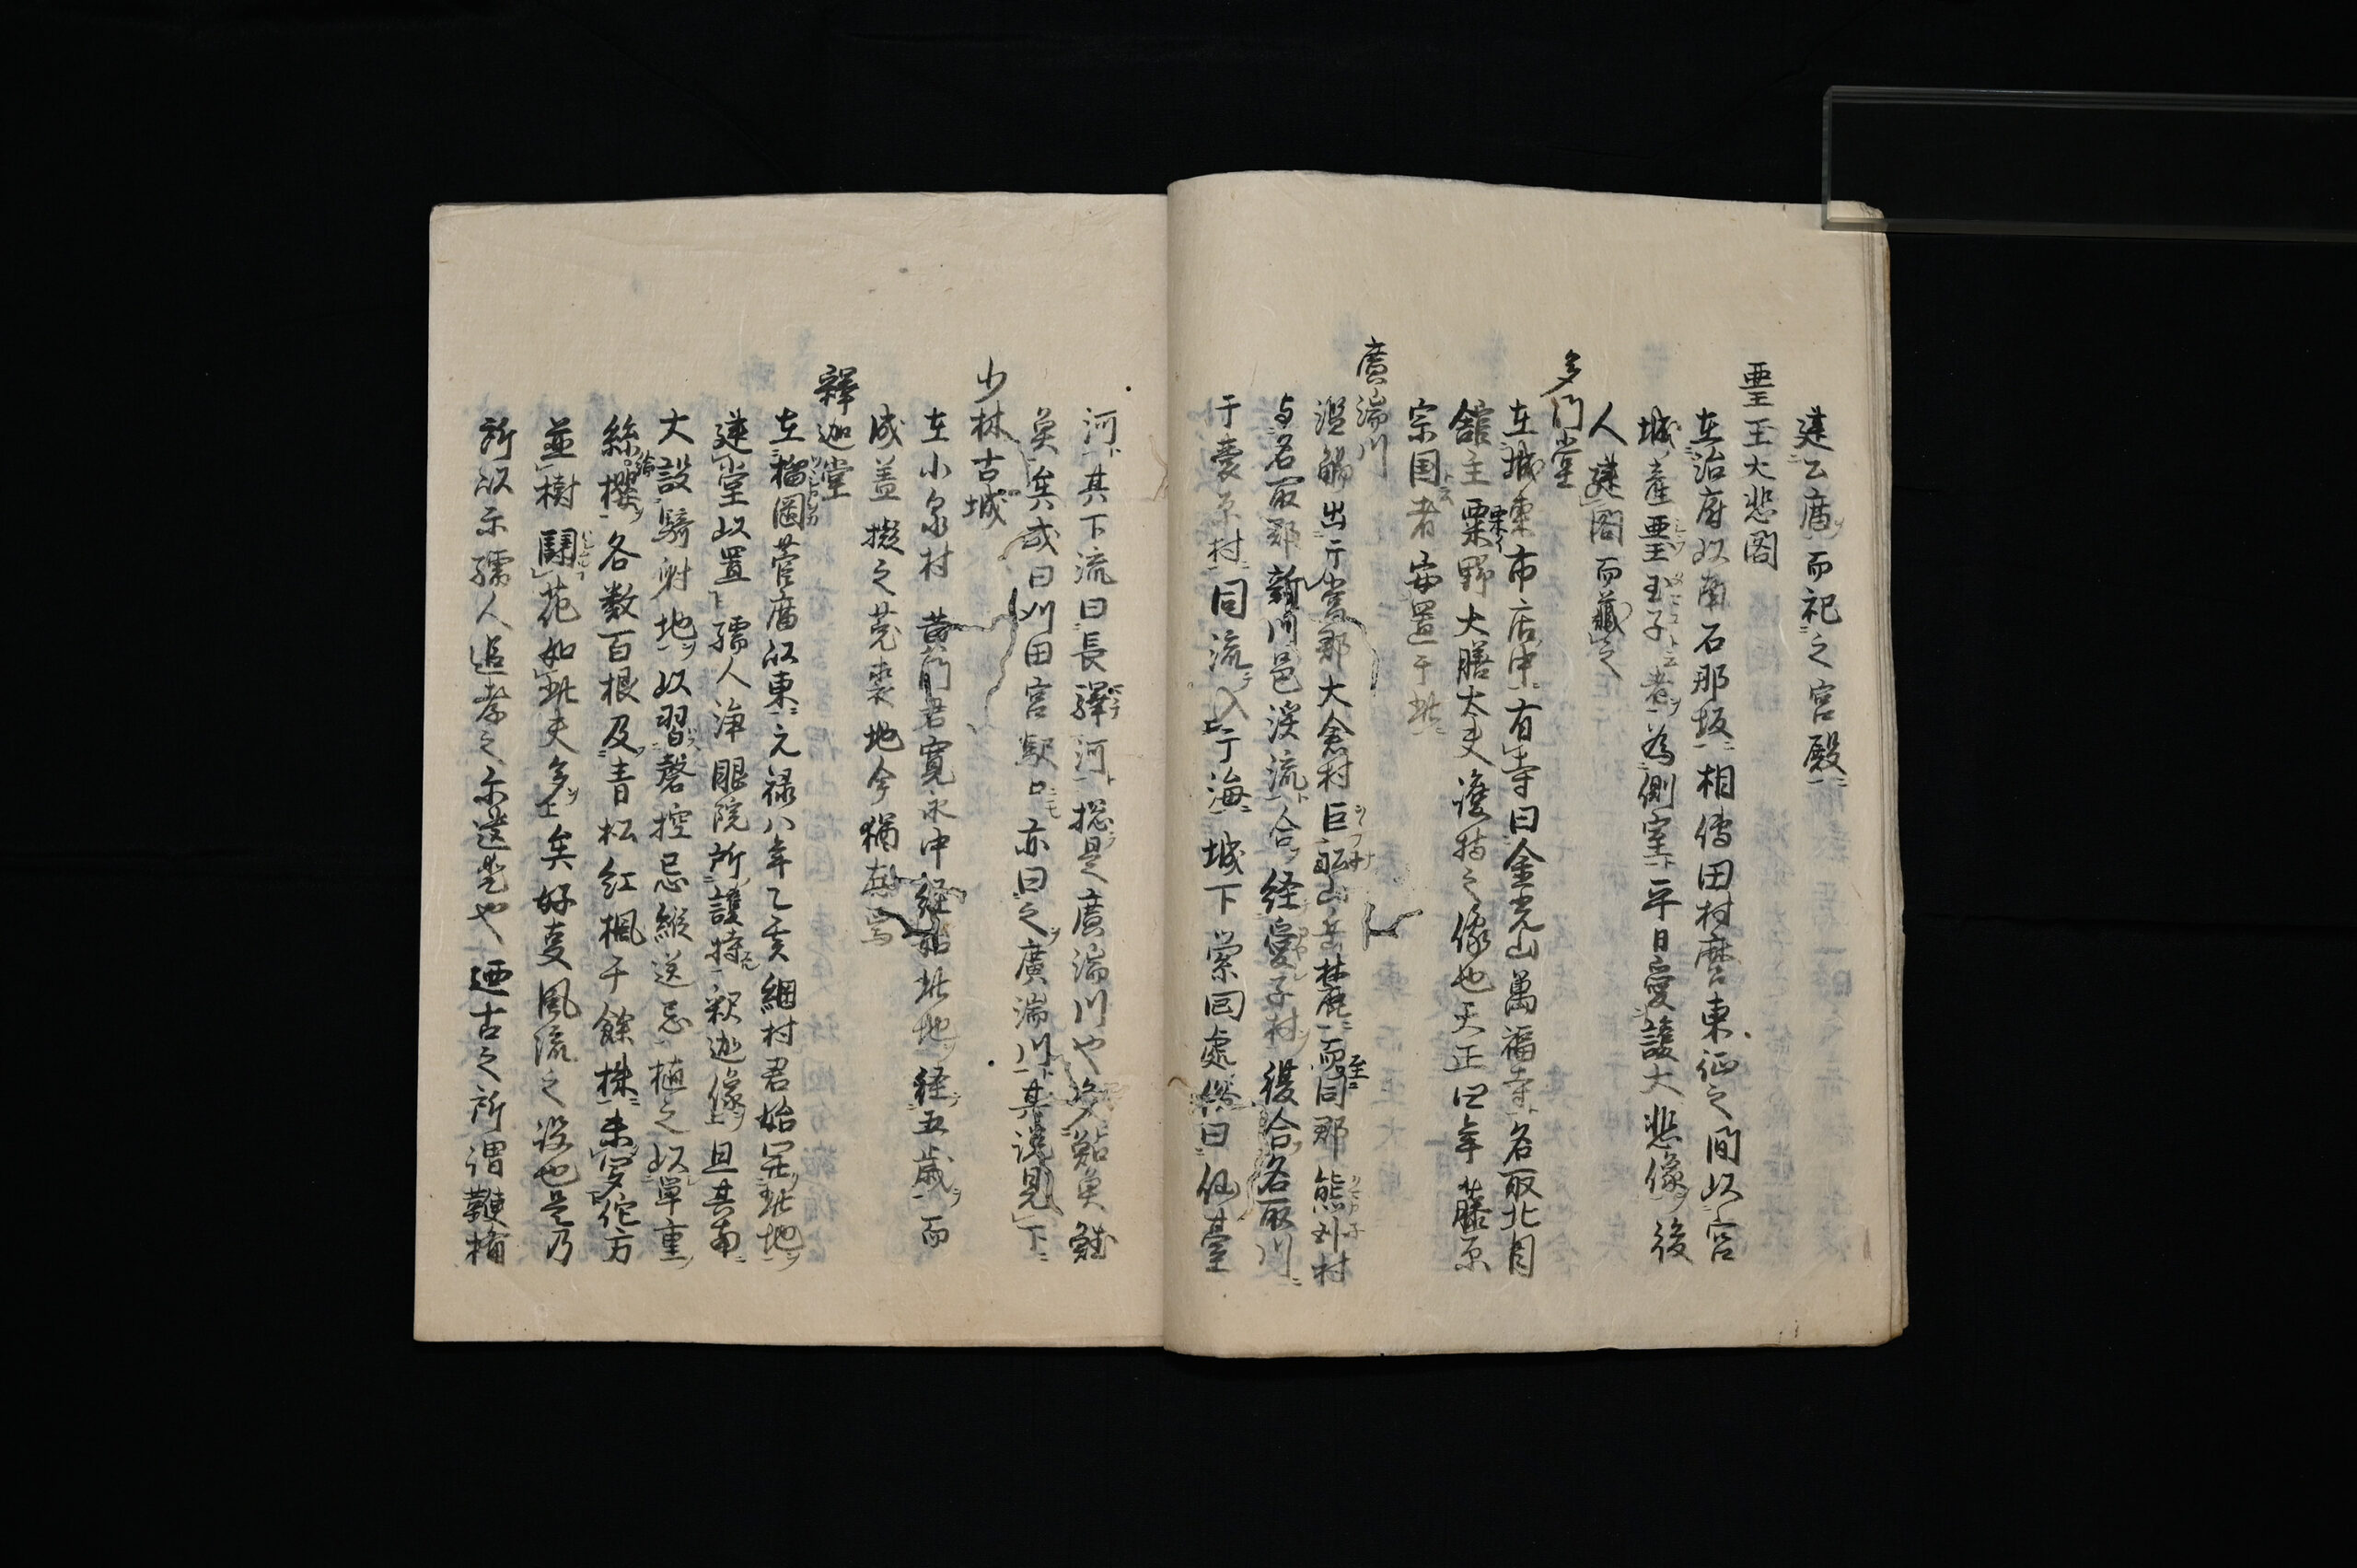 建公廟而祀之宮殿
悪王大悲閣
在治府以南石那坂相傳田村麿東征之間以宮
城産悪王子者為側室平日愛護大悲像後
人建閣而蔵之
多門堂
在城東市店中有寺曰金光山萬福寺名取北目
舘主粟野大膳太夫護持之像也天正四年藤原
宗国者安置于此
廣瀬川
濫觴出于當郡大倉村巨舩山岳麓而至同郡熊村
与名取郡新川邑渓流合経愛子村復合名取川
于豪原村同流入于海城下縈回處俗曰仙臺
河其下流曰長驛河捴是廣瀬川也多鮎魚
魚矣或曰刈田宮駅口亦曰之廣瀬川其説見下
少林古城
在小泉村黄門君寛永中経始此地経五歳而
成盖擬之菟裘地今猶存焉
釋迦堂
在榴岡菅廟以東元禄八年乙亥綱村君始開此地
建堂以置孺人浄眼院所護持釈迦像且其南
大設騎射地以習磬控忌縦送忌植之以単重
絲櫻各数百根及青松紅楓千餘株未寥佗方
並樹闘花如此夫多矣好事風流之設也是乃
所以示孺人追孝之示遺也廼古之所謂